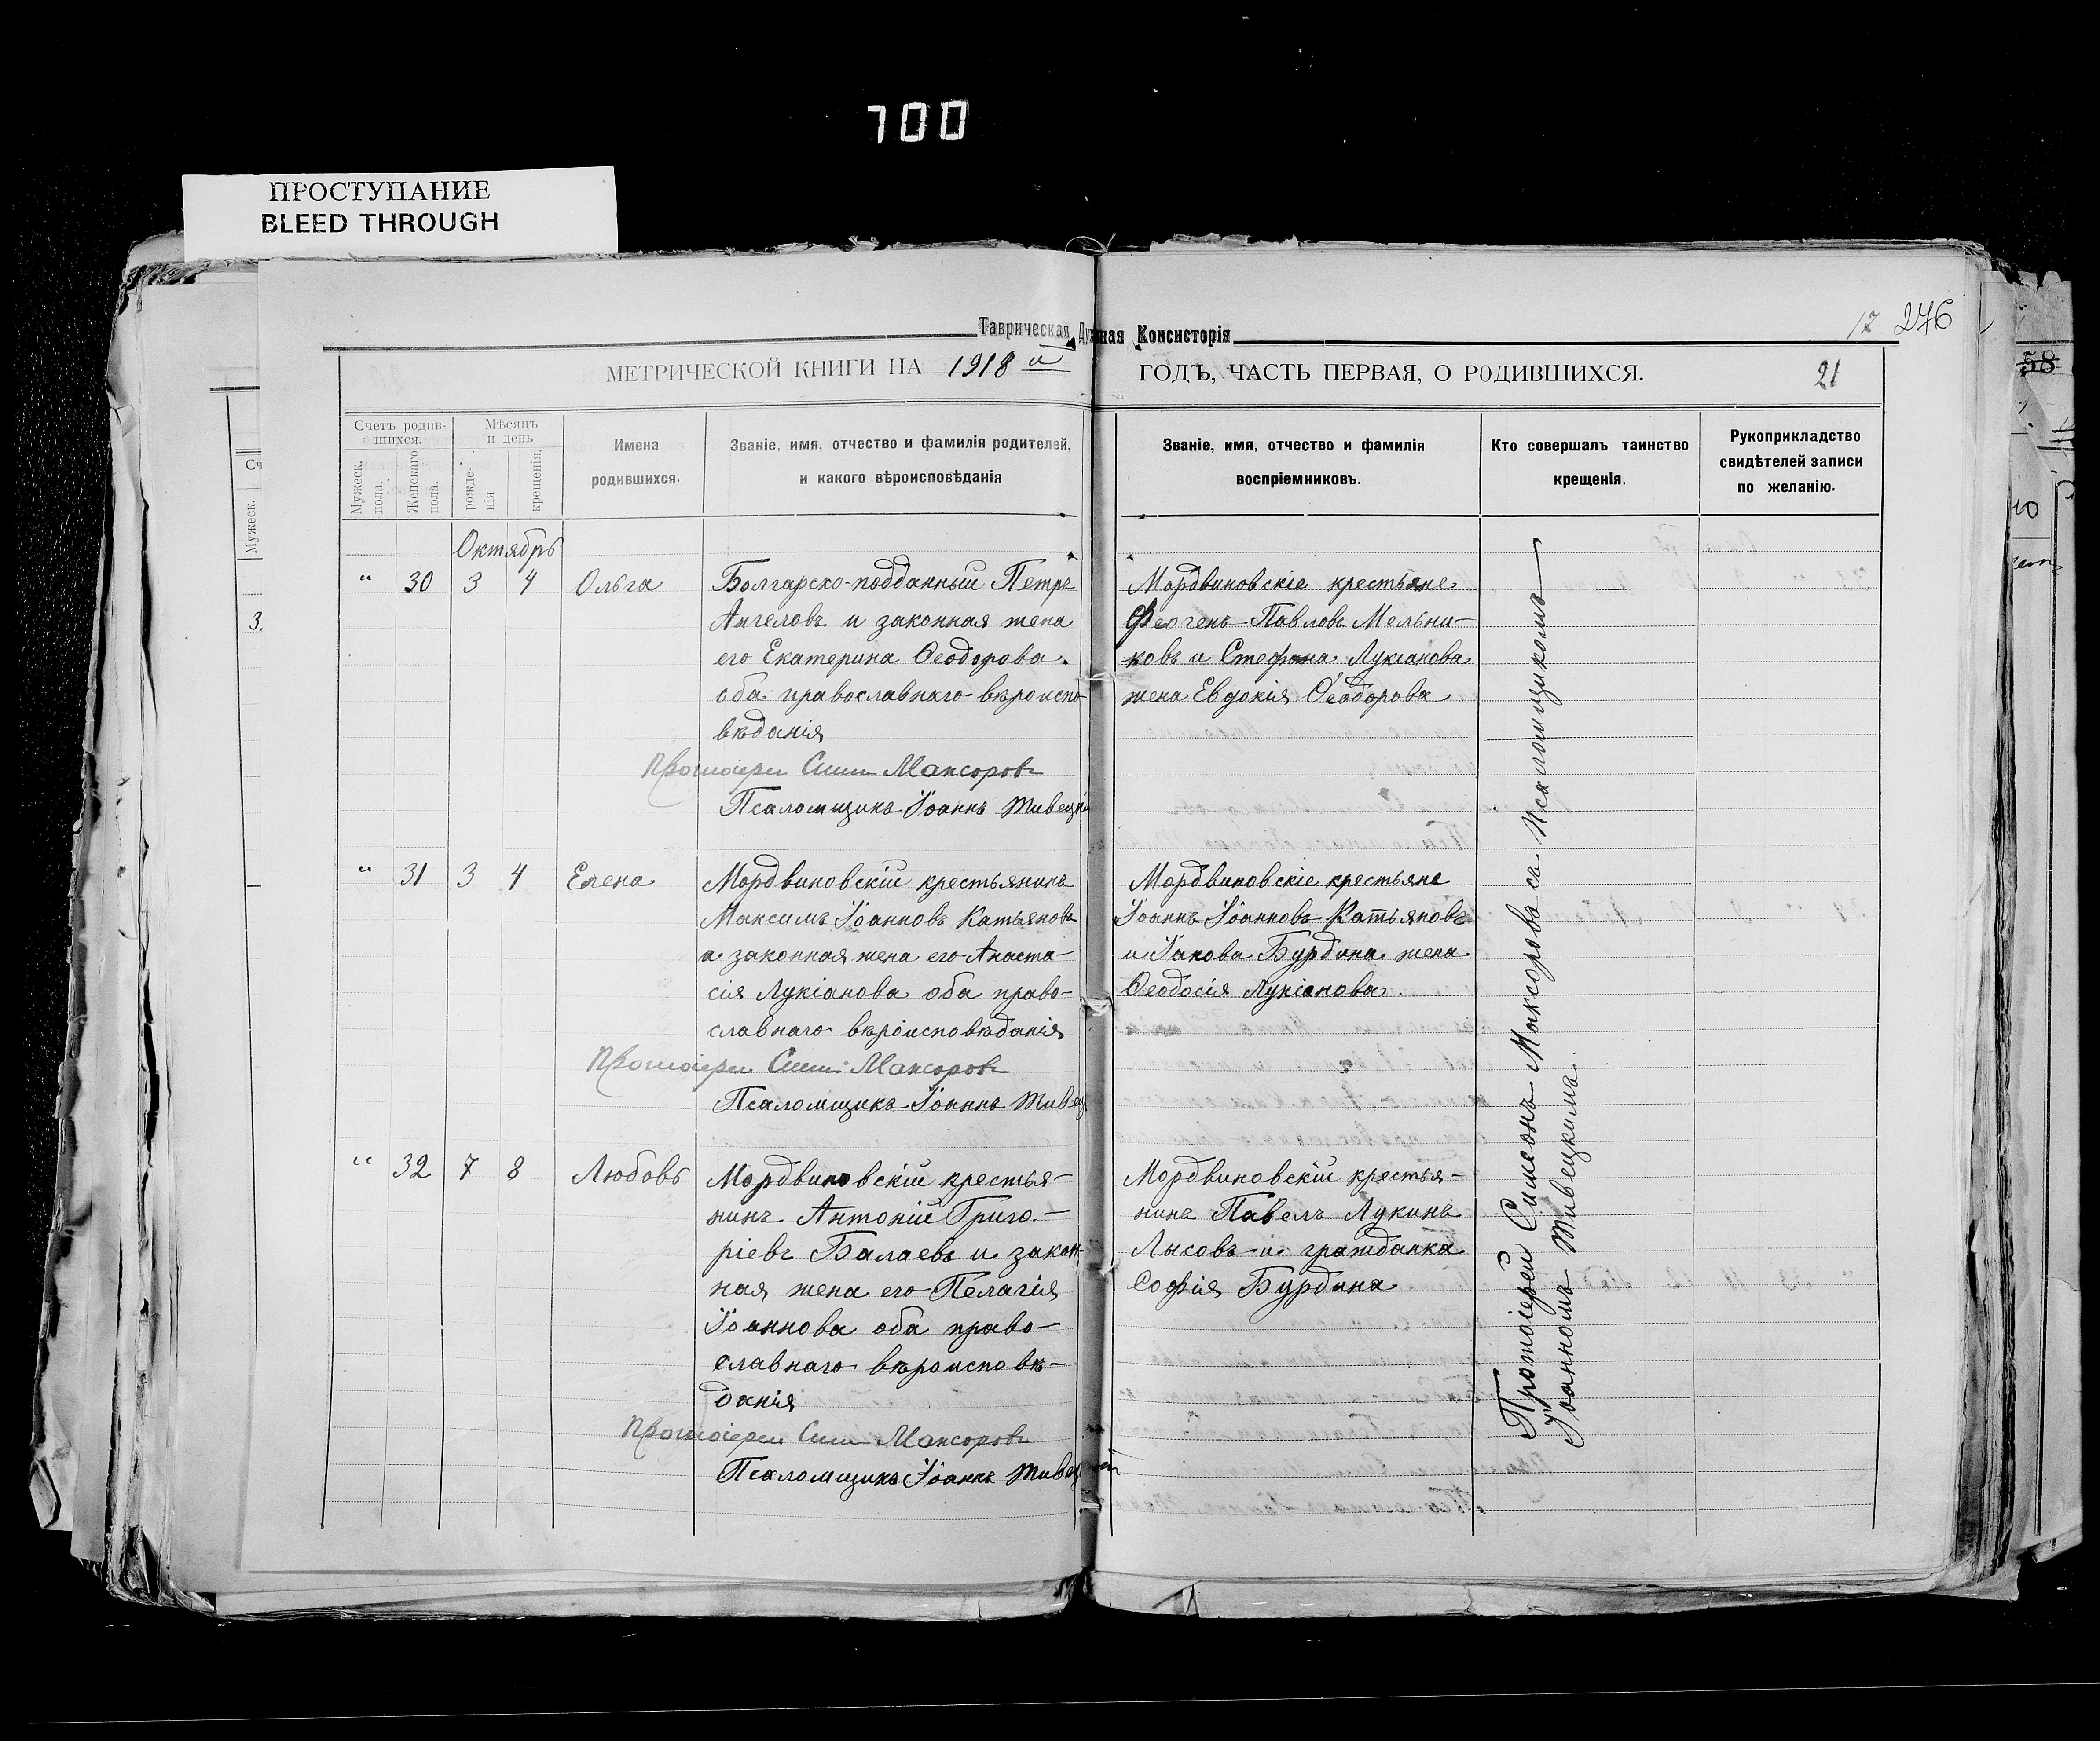 700
ПРОСТУПАНИЕ
BLEED THROUGH
17 276
Таврическая Духовная Консисторія
МЕТРИЧЕСКОЙ КНИГИ НА 1918 й ГОДЪ, ЧАСТЬ ПЕРВАЯ, О РОДИВШИХСЯ. 21
Счетъ родив-
шихся.
Мужеск. пола.
Женскаго пола.
Мѣсяцъ
и день
рожде-
нія
крещенія.
Имена
родившихся.
Званіе, имя, отчество и фамилія родителей,
и какого вѣроисповѣданія
Званіе, имя, отчество и фамилія
воспріемниковъ.
Кто совершалъ таинство
крещенія.
Рукоприкладство
свидѣтелей записи
по желанію.
Октябрь
" 30 3 4 Ольга
Болгарско-подданный Петръ
Ангеловъ и законная жена
его Екатерина Ѳеодорова.
оба православнаго вѣроиспо-
вѣданія
Протоіерей Сим Максоровъ
Псаломщикъ Іоаннъ Живецкій
Мордвиновскіе крестьяне
Феогенъ Павловъ Мельни-
ковъ и Стефана Лукіанова
жена Евдокія Ѳеодорова
" 31 3 4 Елена
Мордвиновскій крестьянинъ
Максимъ Іоанновъ Катьяновъ
и законная жена его Анаста-
сія Лукіанова оба право-
славнаго вѣроисповѣданія
Протоіерей Сим: Максоровъ
Псаломщикъ Іоаннъ Живец
Мордвиновскіе крестьяне
Іоаннъ Іоанновъ Катьяновъ
и Іакова Бурдина жена
Ѳеодосія Лукіанова.
" 32 7 8 Любовь
Мордвиновскій крестья-
нинъ Антоній Григо-
ріевъ Балаевъ и закон-
ная жена его Пелагія
Іоаннова оба право-
славнаго вѣроисповѣ-
данія
Протоіерей Сим Максоровъ
Псаломщикъ Іоаннъ Живецкій
Мордвиновскій крестья-
нинъ Павелъ Лукинъ
Лысовъ и гражданка
Софія Бурдина
Протоіерей Симеонъ Максоровъ съ Псаломщикомъ
Іоанномъ Живецкимъ.
Сч
Мужеск.
3.
58